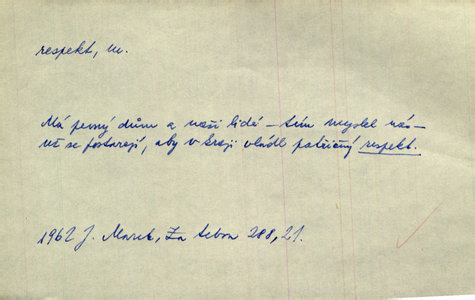 respekt, m.
Má pevný dům a naši lidé – tím myslel nás –
už se postarají, aby v kraji vládl patřičný respekt.
1962 J. Marek, Za tebou 288, 21.